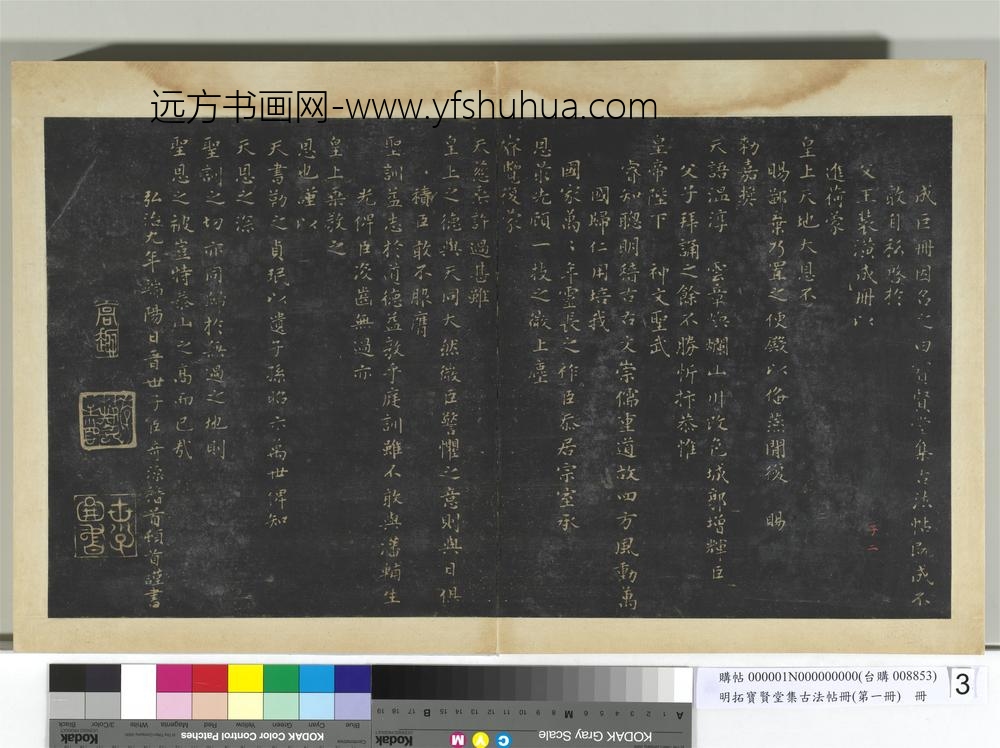 远方书画网-www.yfshuhua.com
成巨冊因名之曰寶賢堂集古法帖既成不
敢自私啓於
父王裝潢成冊以
進荷蒙
皇上天地大恩不
賜鄙棄乃置之便殿以俻燕閒後 賜
勅嘉奬
天語溫淳 雲章炳爛山川改色城郭增輝臣
父子拜誦之餘不勝忻抃恭惟
皇帝陛下 神文聖武
睿知聰明稽古右文崇儒重道故四方風動萬
國歸仁用培我
國家萬萬年靈長之祚臣忝居宗室承
恩眷光顧一技之微上塵
睿覽復蒙
天慈奬許過甚雖
皇上之德與天同大然微臣警懼之意則與日俱
積臣敢不服膺
聖訓益志於道德益敦乎庭訓雖不敢與藩輔生
光俾臣沒齒無過亦
皇上奬敎之
恩也謹以
天書勒之貞珉以遺子孫昭示萬世俾知
天恩之深
聖訓之切亦同歸於無過之地則
聖恩之被豈特泰山之高而已哉
弘治九年端陽日晉世子臣奇源稽首頓首謹書
購帖 000001N000000000(台購 008853)
明拓寶賢堂集古法帖冊(第一冊) 冊
3
KODAK Color Control Patches
Kodak
Blue
Cyan
Green
Yellow
Red
Magenta
White
3/Color
Black
KODAK Gray Scale
Kodak
C
Y
M
A 1 2 3 4 5 6 M 8 9 10 11 12 13 14 15 B 17 18 19